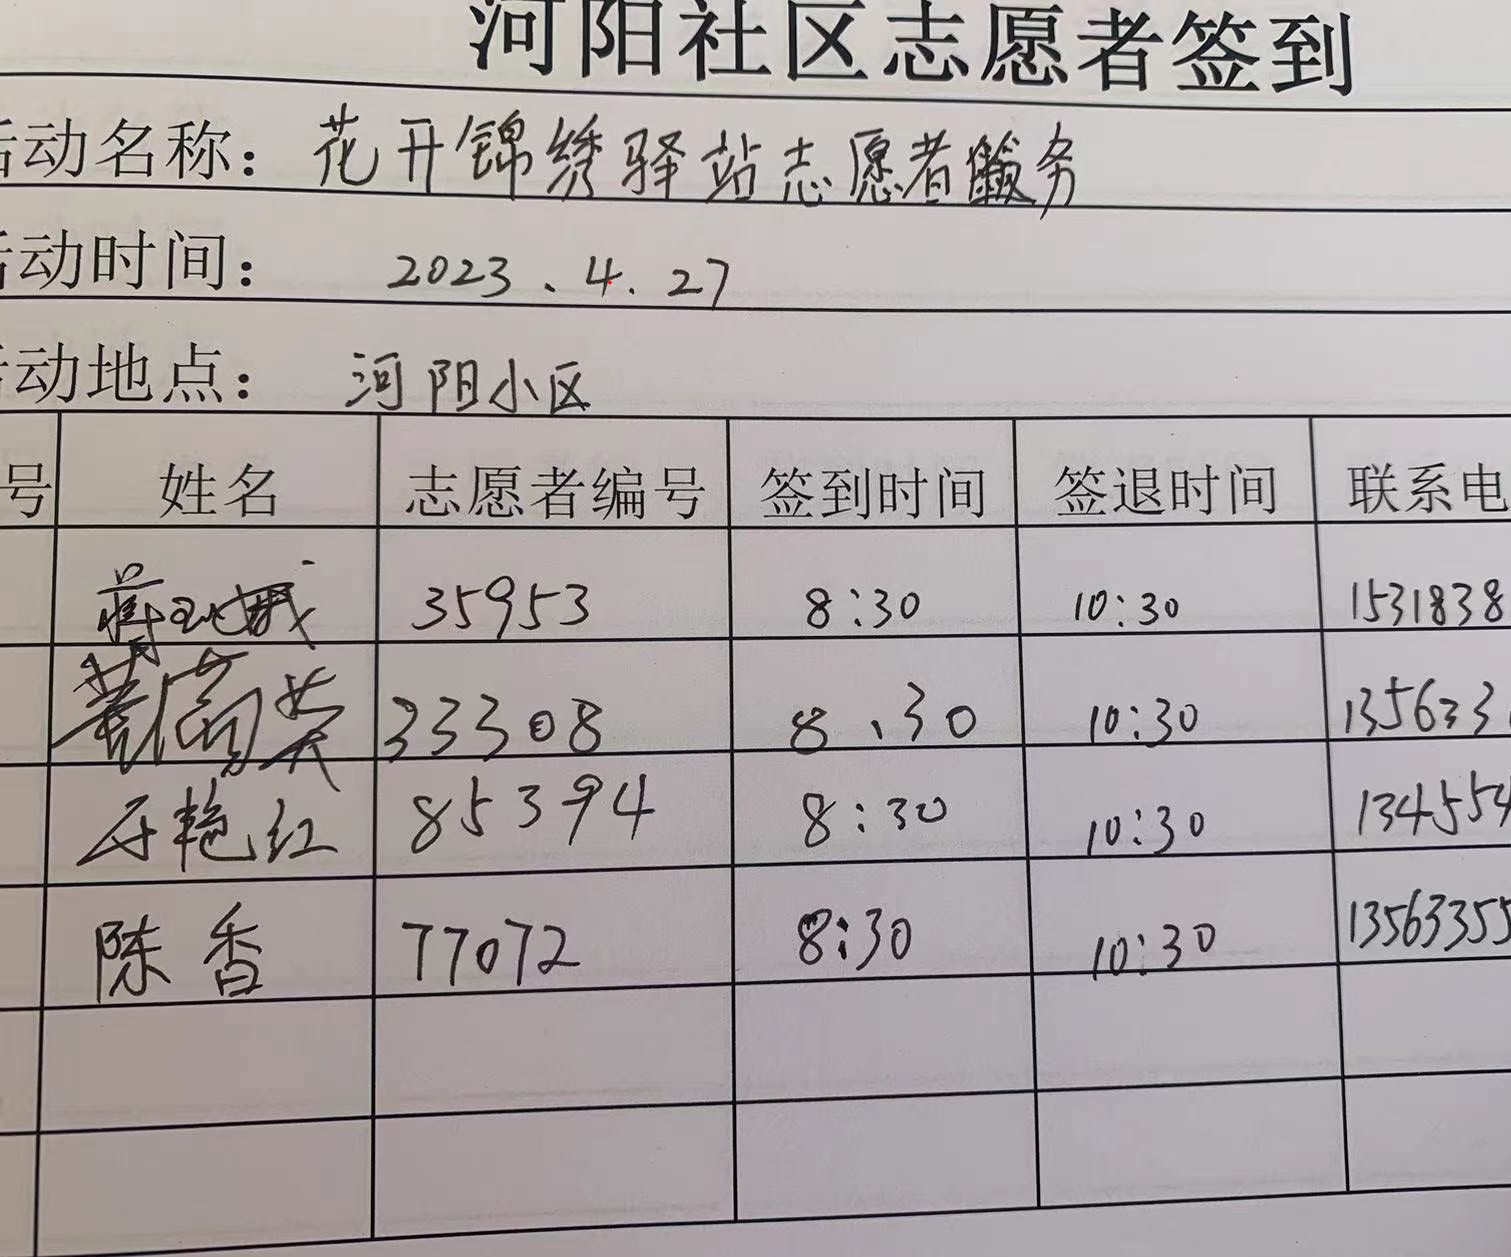 河阳社区志愿者签到
活动名称：花开锦绣驿站志愿者服务
活动时间：2023.4.27
活动地点：河阳小区
号 姓名 志愿者编号 签到时间 签退时间 联系电
35953 8:30 10:30 1531838
33308 8.30 10:30 135633
艳红 85394 8:30 10:30 134554
陈香 77072 8:30 10:30 13563355